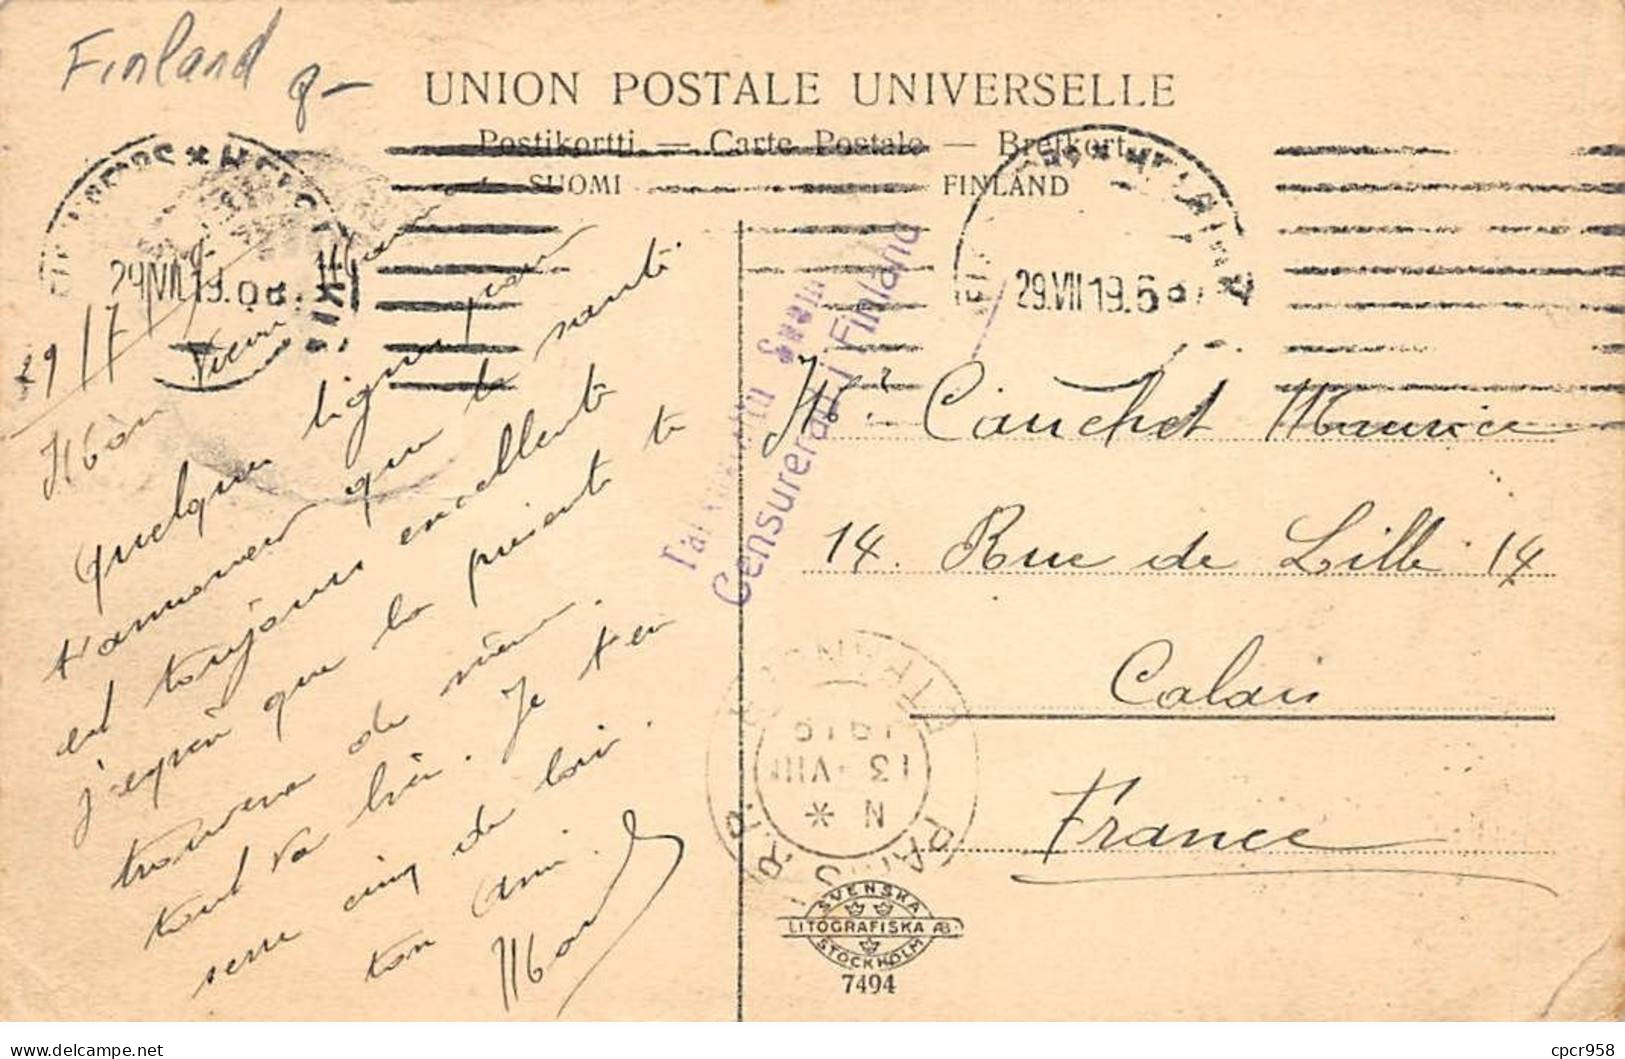 Finland
UNION POSTALE UNIVERSELLE
Postikortti — Carte Postale — Brefkort
SUOMI FINLAND
29.VII.19.
29.VII.19.
29/7
Mon Vieux
Quelques lignes pour
t'annoncer que la santé
est toujours excellente
j'espère que la présente te
trouvera de même.
tout va bien. Je t'en
serre cinq de loin.
ton ami.
Censurerats i Finland
Mr. Cauchet Maurice
14. Rue de Lille 14
Calais
France
ETRANGER
13 - VIII
N *
PARIS
R.P.
SVENSKA
LITOGRAFISKA AB
STOCKHOLM
7494
delcampe.net
cpcr958